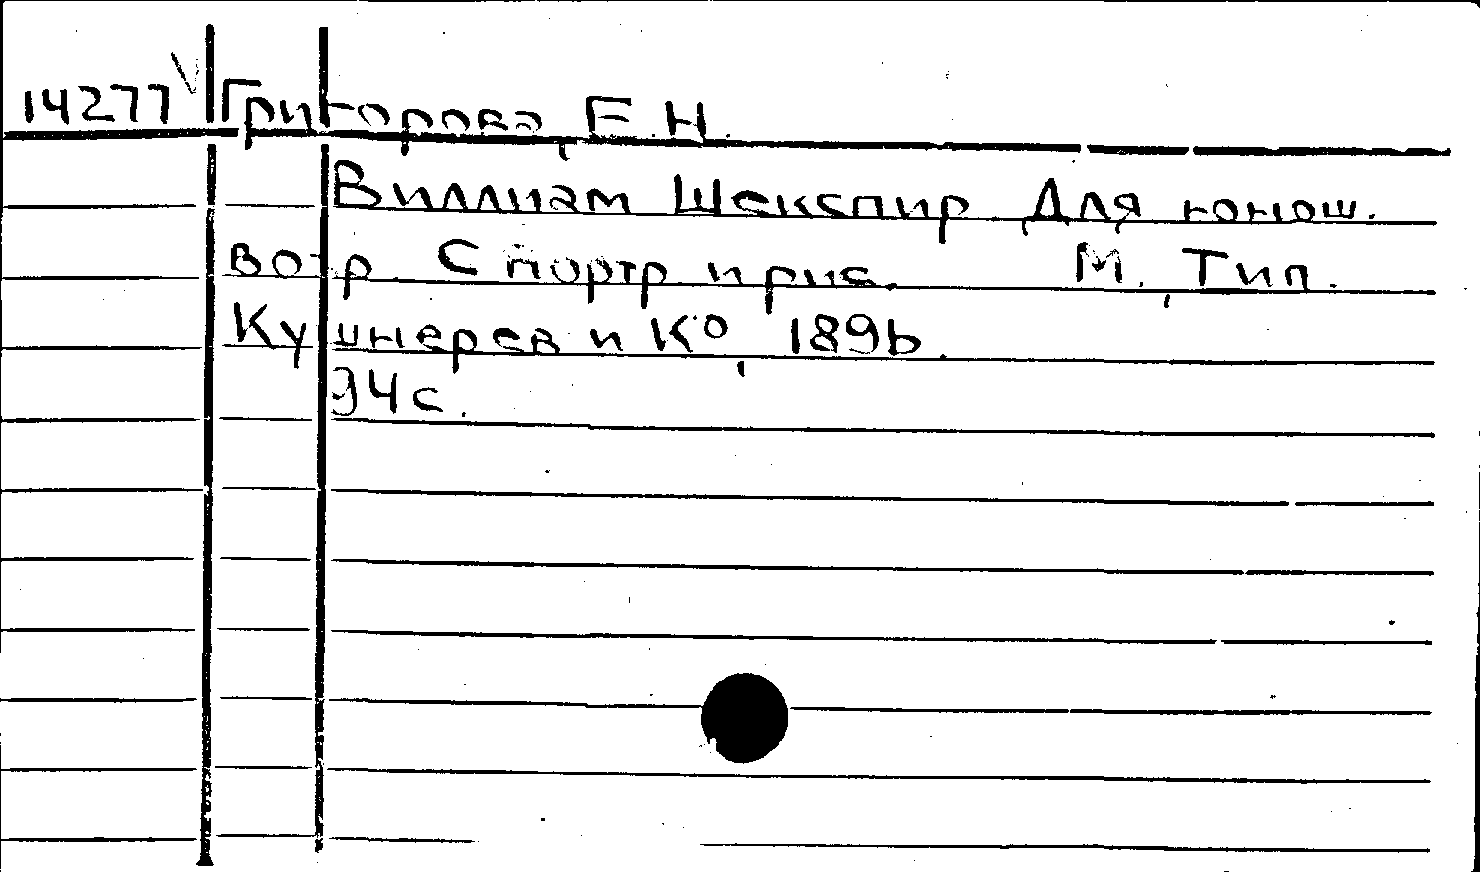 14277 Григорова, Е.Н.
Виллиам Шекспир. Для юнош.
вотр. С портр. и рис. М., Тип.
Кушнерев и К°, 1896.
94 с.